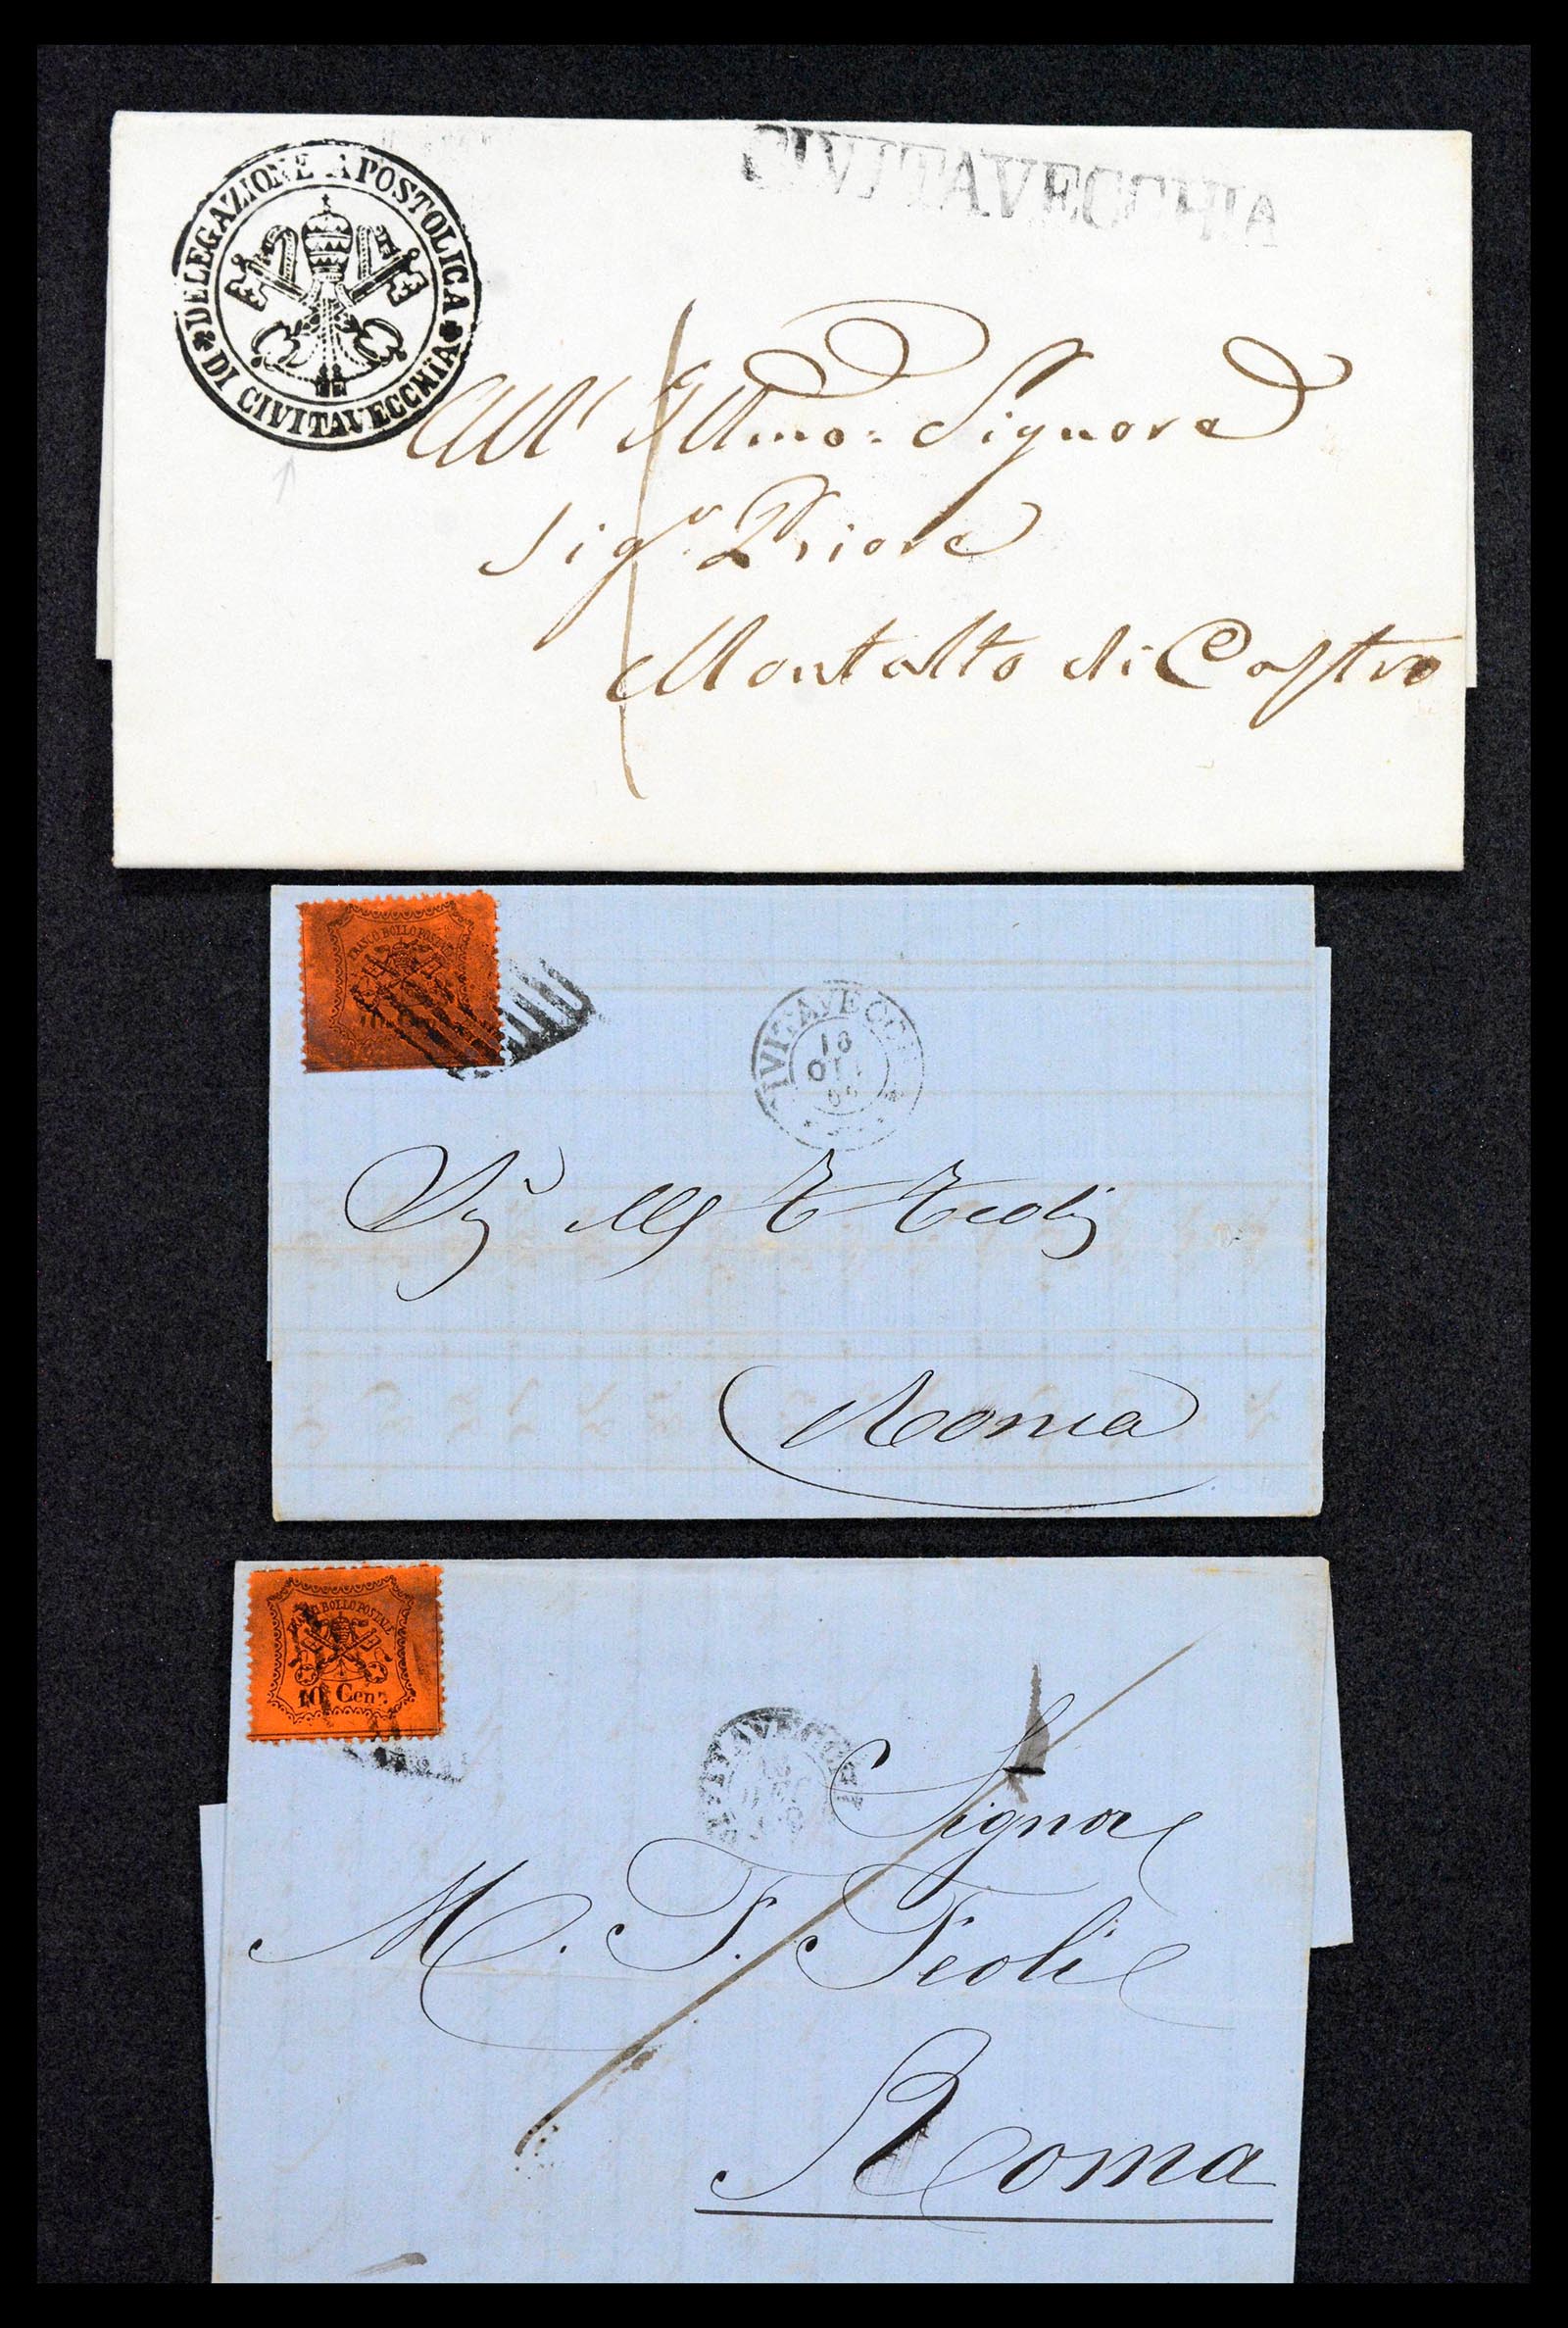 DELEGAZIONE APOSTOLICA
DI CIVITAVECCHIA
CIVITAVECCHIA
All' Illmo: Signore
Sigr Priore
Montalto di Castro
FRANCO BOLLO POSTALE
10
CIVITAVECC
18
Roma
FRANCO BOLLO POSTALE
10 Cent.
Signore
M. F. Feoli
Roma